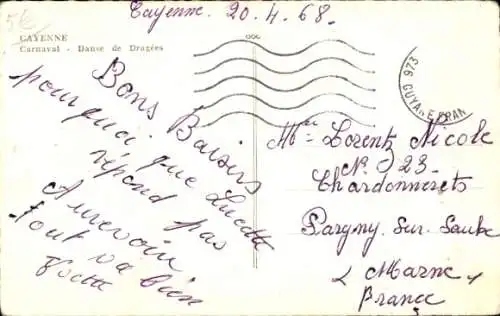 5€
Cayenne. 20. 4. 68.
CAYENNE
Carnaval - Danse de Dragées
Bons Baisers
pourquoi que Lucette
répond pas
Aurevoir
tout va bien
973 GUYANE FRAN
Melle Lorentz Nicole
N° 23
Chardonnerets
Pargny. Sur. Saulx
(Marne)
France